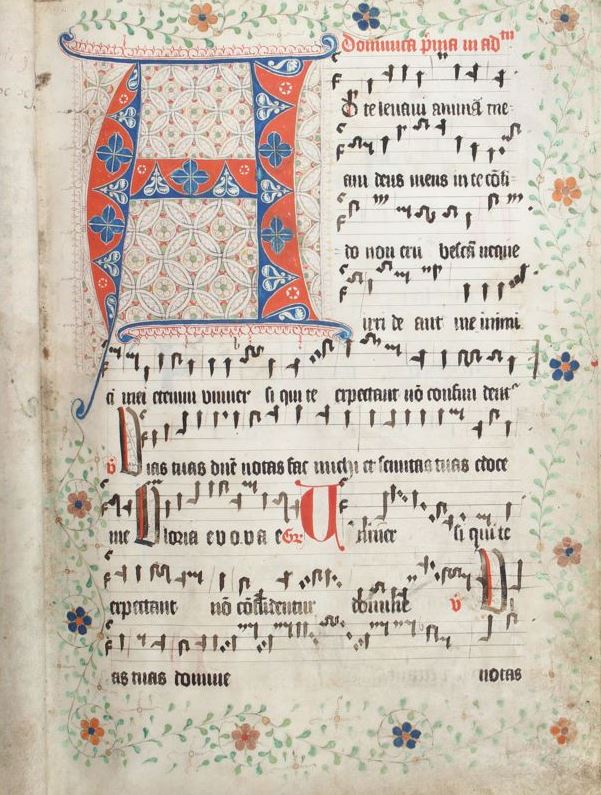 Dominica prima in adtm
A d te levavi animā me
am deus meus in te cōfi
do non eru bescā neque
irri de ant me inimi
ci mei etenim univer si qui te expectant nō confun dentr
v Vias tuas dnē notas fac michi et semitas tuas edoce
me Gloria e v o v a e Gr U niver si qui te
expectant nō cōfūdentur domine v Vi
as tuas domine notas